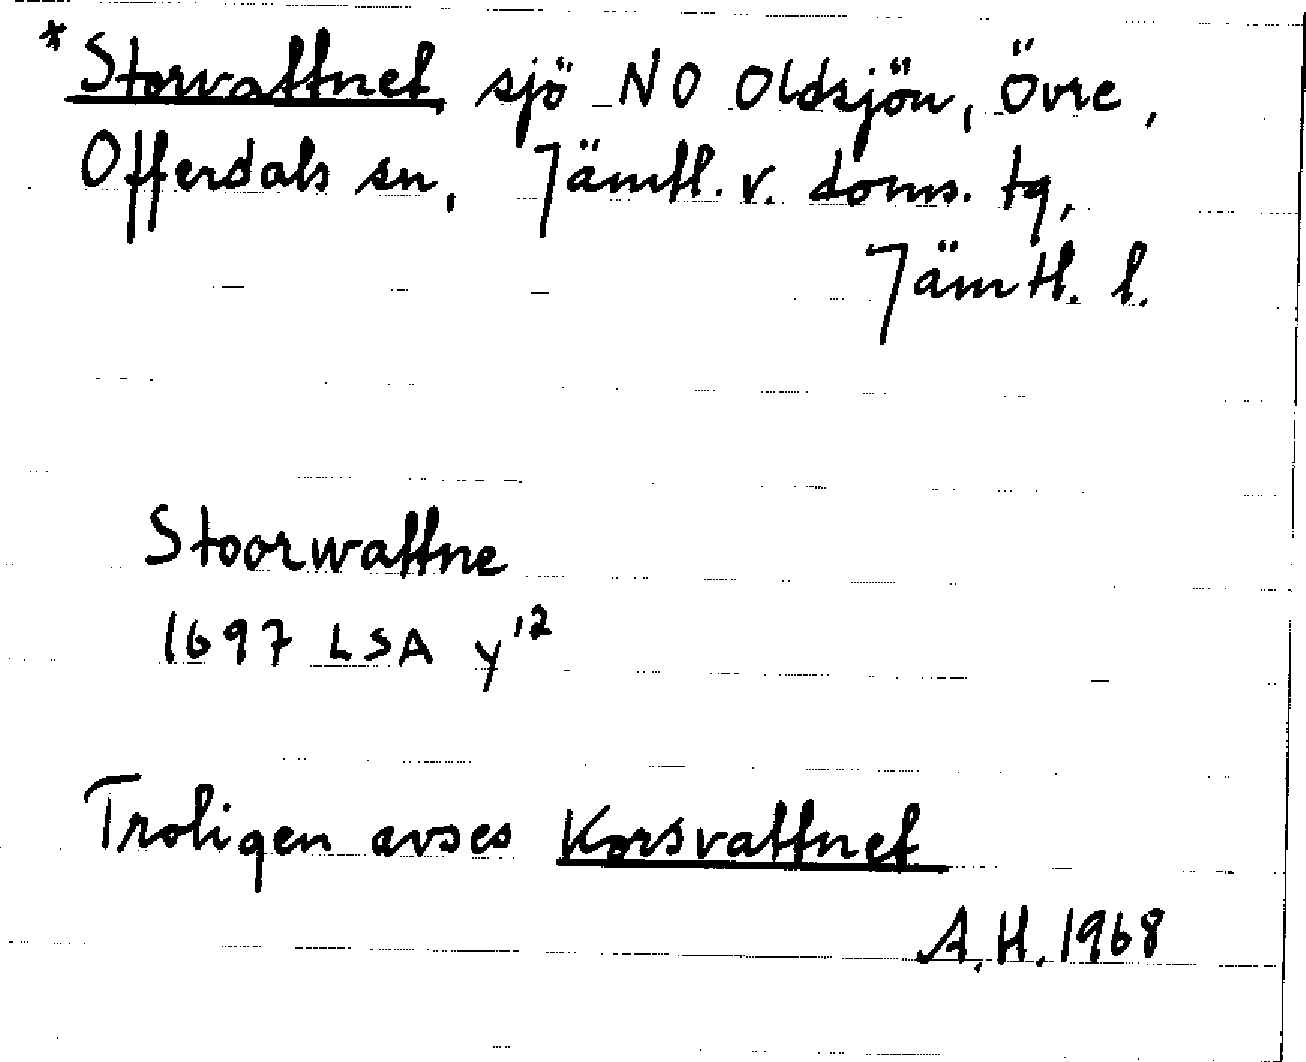 *Storvattnet, sjö NO Oldsjön, Övre,
Offerdals sn, Jämtl. v. doms. tg,
Jämtl. l.
Stoorwattne
1697 LSA y¹²
Troligen avses Korsvattnet
A.H. 1968